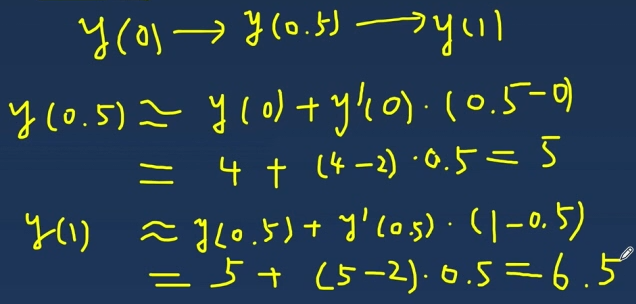 y(0) → y(0.5) → y(1)
y(0.5) ≈ y(0) + y'(0) · (0.5-0)
= 4 + (4-2) · 0.5 = 5
y(1) ≈ y(0.5) + y'(0.5) · (1-0.5)
= 5 + (5-2) · 0.5 = 6.5